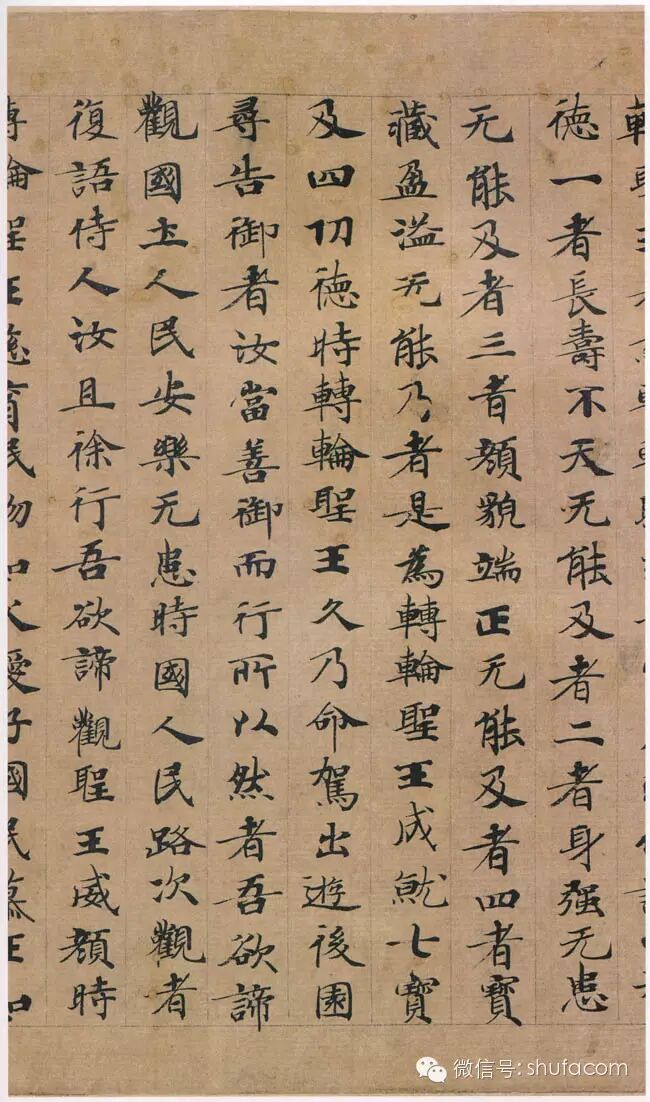 徳一者長壽不夭无能及者二者身强无患
无能及者三者顏貌端正无能及者四者寶
藏盈溢无能乃者是為轉輪聖王成就七寶
及四功徳時轉輪聖王久乃命駕出遊後園
尋告御者汝當善御而行所以然者吾欲諦
觀國土人民安樂无患時國人民路次觀者
復語侍人汝且徐行吾欲諦觀聖王威顏時
轉輪聖王慈育民物如父愛子國民慕王如
微信号: shufacom